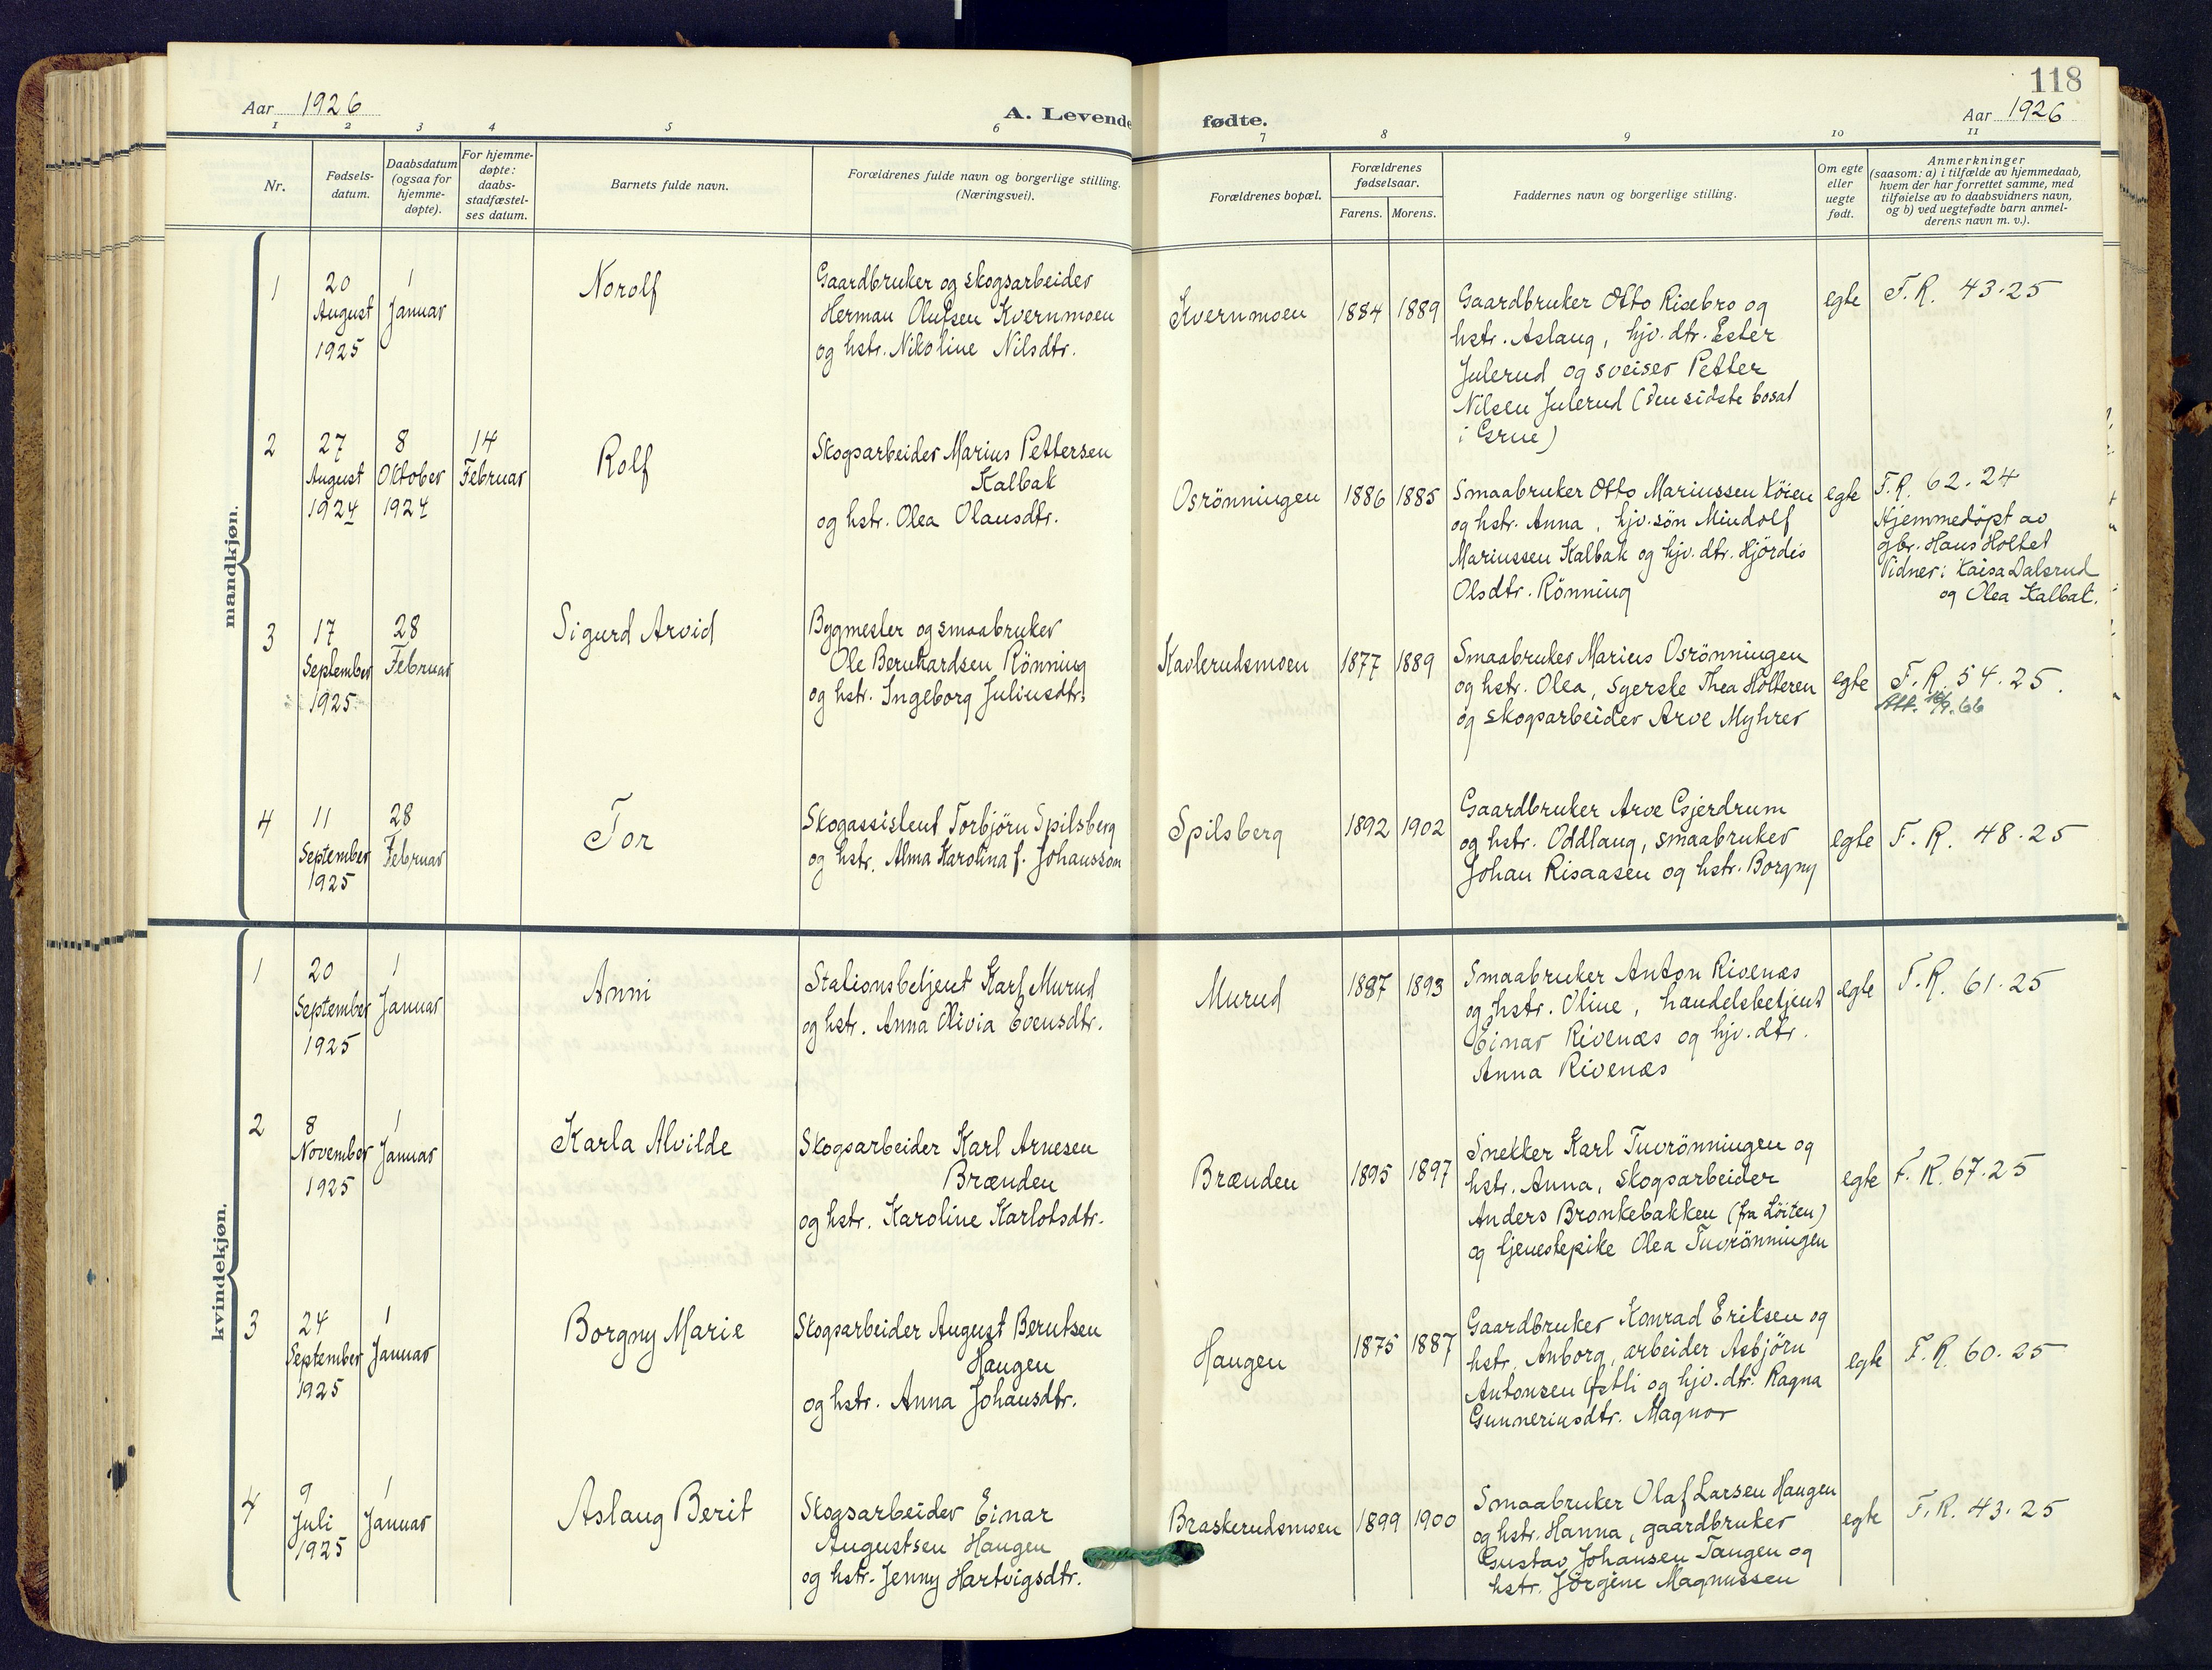 118
Aar 1926
A. Levende fødte.
Aar 1926
1 2 3 4 5 6 7 8 9 10 11
Nr.
Fødsels-
datum.
Daabsdatum
(ogsaa for
hjemme-
døpte).
For hjemme-
døpte:
daabs-
stadfæstel-
ses datum.
Barnets fulde navn.
Forældrenes fulde navn og borgerlige stilling.
(Næringsvei).
Forældrenes bopæl.
Forældrenes
fødselsaar.
Farens. Morens.
Faddernes navn og borgerlige stilling.
Om egte
eller
uegte
født.
Anmerkninger
(saasom: a) i tilfælde av hjemmedaab,
hvem der har forrettet samme, med
tilføielse av to daabsvidners navn,
og b) ved uegtefødte barn anmel-
derens navn m. v.).
mandkjøn.
1
20
August
1925
1
Januar
Norolf
Gaardbruker og skogsarbeider
Herman Olufsen Kvernmoen
og hstr. Nikoline Nilsdtr.
Kvernmoen
1884
1889
Gaardbruker Otto Risebro og
hstr. Aslaug, hjv. dtr. Ester
Julerud og sveiser Petter
Nilsen Julerud (den sidste bosat
i Grue)
egte
F.R. 43.25
2
27
August
1924
8
Oktober
1924
14
Februar
Rolf
Skogsarbeider Marius Pettersen
Kalbak
og hstr. Olea Olausdtr.
Osrönningen
1886
1885
Smaabruker Otto Mariussen Köien
og hstr. Anna, hjv. sön Mindolf
Mariussen Kalbak og hjv. dtr. Hjördis
Olsdtr. Rönning
egte
F.R. 62.24
Hjemmedöpt av
gbr. Hans Holtet
Vidner: Kaisa Dalsrud
og Olea Kalbak.
3
17
September
1925
28
Februar
Sigurd Arvid
Bygmester og smaabruker
Ole Bernhardsen Rönning
og hstr. Ingeborg Juliusdtr.
Kavlerudsmoen
1877
1889
Smaabruker Marius Osrönningen
og hstr. Olea, syerske Thea Holteren
og skogsarbeider Arve Myhrer
egte
F.R. 54.25.
Att.
4
11
September
1925
28
Februar
Tor
Skogassistent Torbjörn Spilsberg
og hstr. Alma Karolina f. Johansson
Spilsberg
1892
1902
Gaardbruker Arve Gjerdrum
og hstr. Oddlaug, smaabruker
Johan Risaasen og hstr. Borgny
egte
F.R. 48.25
kvindekjøn.
1
20
September
1925
1
Januar
Anni
Stationsbetjent Karl Murud
og hstr. Anna Olivia Evensdtr.
Murud
1887
1893
Smaabruker Anton Rivenæs
og hstr. Oline, handelsbetjent
Einar Rivenæs og hjv. dtr.
Anna Rivenæs
egte
F.R. 61.25
2
8
November
1925
1
Januar
Karla Alvilde
Skogsarbeider Karl Arnesen
Brænden
og hstr. Karoline Karlotsdtr.
Brænden
1895
1897
Snekker Karl Tuvrönningen og
hstr. Anna, Skogsarbeider
Anders Bronkebakken (fra Löiten)
og tjenestepike Olea Tuvrönningen
egte
F.R. 67.25
3
24
September
1925
1
Januar
Borgny Marie
Skogsarbeider August Berntsen
Haugen
og hstr. Anna Johansdtr.
Haugen
1875
1887
Gaardbruker Konrad Eriksen og
hstr. Anborg, arbeider Asbjörn
Antonsen og hjv. dtr. Ragna
Gunneriusdtr. Magnor
egte
F.R. 60.25
4
9
Juli
1925
1
Januar
Aslaug Berit
Skogsarbeider Einar
Augustsen Haugen
og hstr. Jenny Hartvigsdtr.
Braskerudsmoen
1899
1900
Smaabruker Olaf Larsen Haugen
og hstr. Hanna, gaardbruker
Gustav Johansen Tangen og
hstr. Jörgine Magnussen
egte
F.R. 43.25